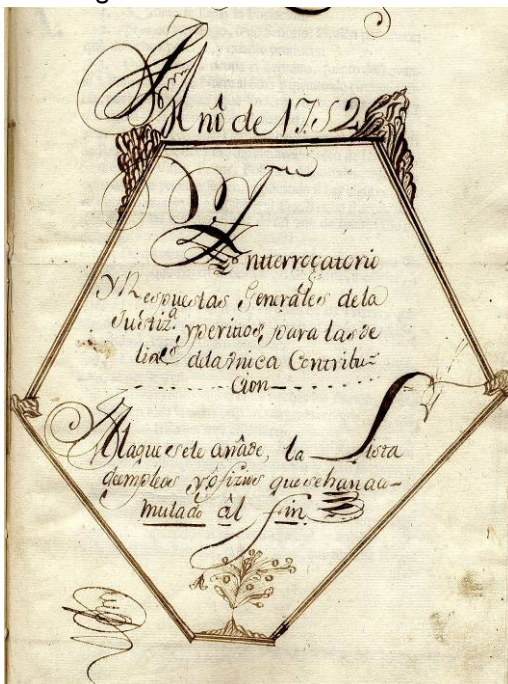 Año de 1752
Ynterrogatorio
y Respuestas Generales dela
Justizª. y peritos, para las de
delaVnica Contribu-
cion
Alaquesele añade, la Lista
deempleos y ofizios quesehan acu-
mulado âl fin